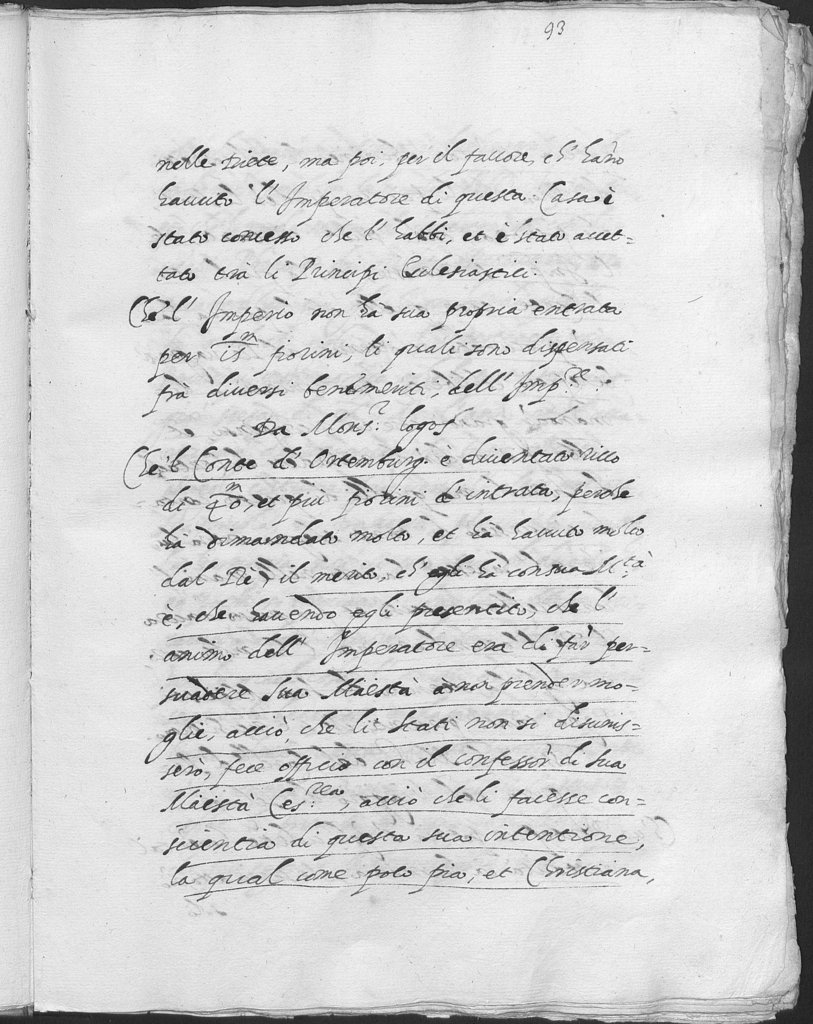 93
nelle Diete, ma poi, per il fauore, ch' hano
hauuto l' Imperatore di questa Casa è
stato concesso che l' habbi, et è stato accet=
tato trà li Principi Eclesiastici.
Che l' Imperio non hà sua propria entrata
per 15 m fiorini, li quali sono dispensati
frà diuersi benemeriti, dell' Imp.re
Da Mons.r logos
Che 'l Conte d' Ortemburg. è diuentato ricco
di 40 m, et più fiorini d' intrata, perche
hà dimandato molto, et hà hauuto molto
dal Rè, il merito, ch' egli hà con sua M.tà
è, che hauendo egli presentito, che l'
animo dell' Imperatore era di far per=
suadere Sua Maestà à non prender mo=
glie, acciò, che li stati non si disunis=
serò, fece officio con il confessor di Sua
Maestà Ces.rea, acciò che li facesse con=
scientia di questa sua intentione,
la qual come poco pia, et Christiana,